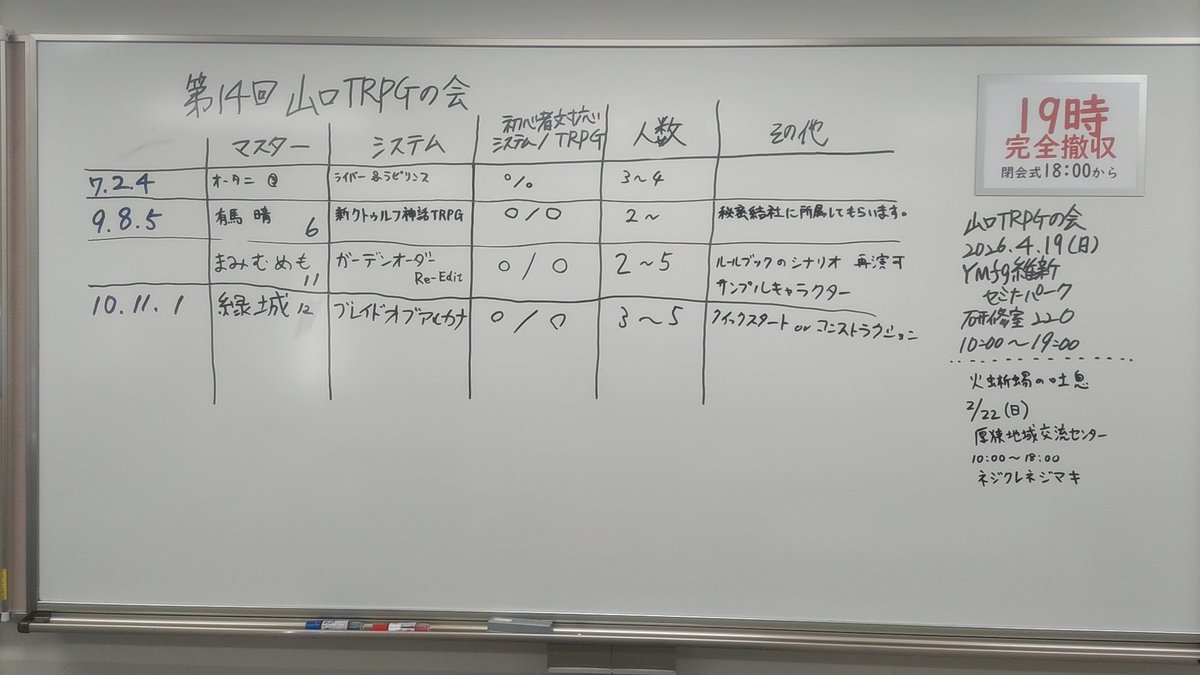 第14回 山口TRPGの会
マスター システム 初心者対応 システム/TRPG 人数 その他
7.2.4 オータニ ライバー&ラビリンス ○/○ 3〜4
9.8.5 有馬 晴 6 新クトゥルフ神話TRPG ○/○ 2〜 秘密結社に所属してもらいます。
まみむめも 11 ガーデンオーダー Re-Edit ○/○ 2〜5 ルールブックのシナリオ 再演可
サンプルキャラクター
10.11.1 緑城 12 ブレイドオブアルカナ ○/○ 3〜5 クイックスタート or コンストラクション
19時
完全撤収
閉会式18:00から
山口TRPGの会
2026.4.19(日)
YMfg維新
セミナーパーク
研修室220
10:00〜19:00
火蜥蜴の吐息
2/22(日)
厚狭地域交流センター
10:00〜18:00
ネジクレネジマキ